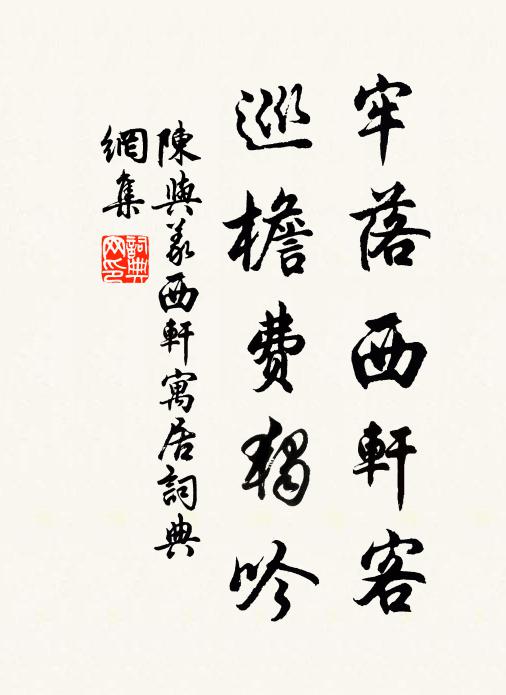 牢落西軒客
巡檐費獨吟
陳與義西軒寓居詞典
網集
詞典網印